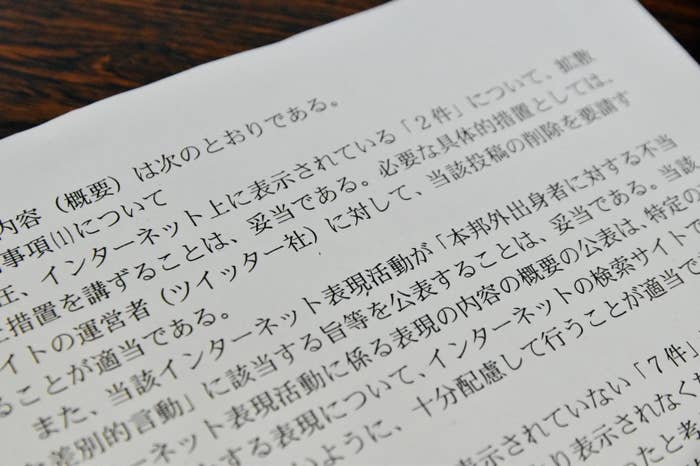 内容（概要）は次のとおりである。
事項⑴について
在、インターネット上に表示されている「２件」について、拡散
止措置を講ずることは、妥当である。必要な具体的措置としては、
イトの運営者（ツイッター社）に対して、当該投稿の削除を要請す
ることが適当である。
また、当該インターネット表現活動が「本邦外出身者に対する不当
な差別的言動」に該当する旨等を公表することは、妥当である。当該
ーネット表現活動に係る表現の内容の概要の公表は、特定の
する表現について、インターネットの検索サイトで
いように、十分配慮して行うことが適当で
表示されていない「７件」
り表示されなく
たと考